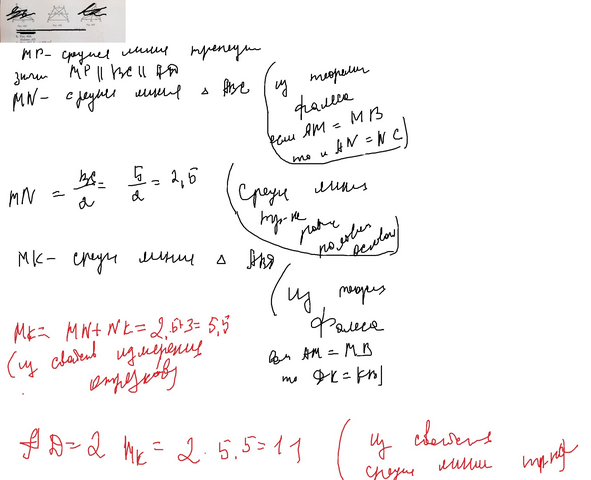 MP – средняя линия трапеции
значит MP || BC || AD
MN – средняя линия △ ABC
(из теоремы
Фалеса
если AM = MB
то и AN = NC)
MN = BC/2 = 5/2 = 2,5
(средн линия
тр-ка равна
половине
основан)
MK – средн линия △ ABD
(из теорем
Фалеса
если AM = MB
то DK = KB)
MK = MN + NK = 2,5+3 = 5,5
(из свойств измерения
отрезков)
AD = 2 MK = 2 · 5,5 = 11
(из свойства
средн линии